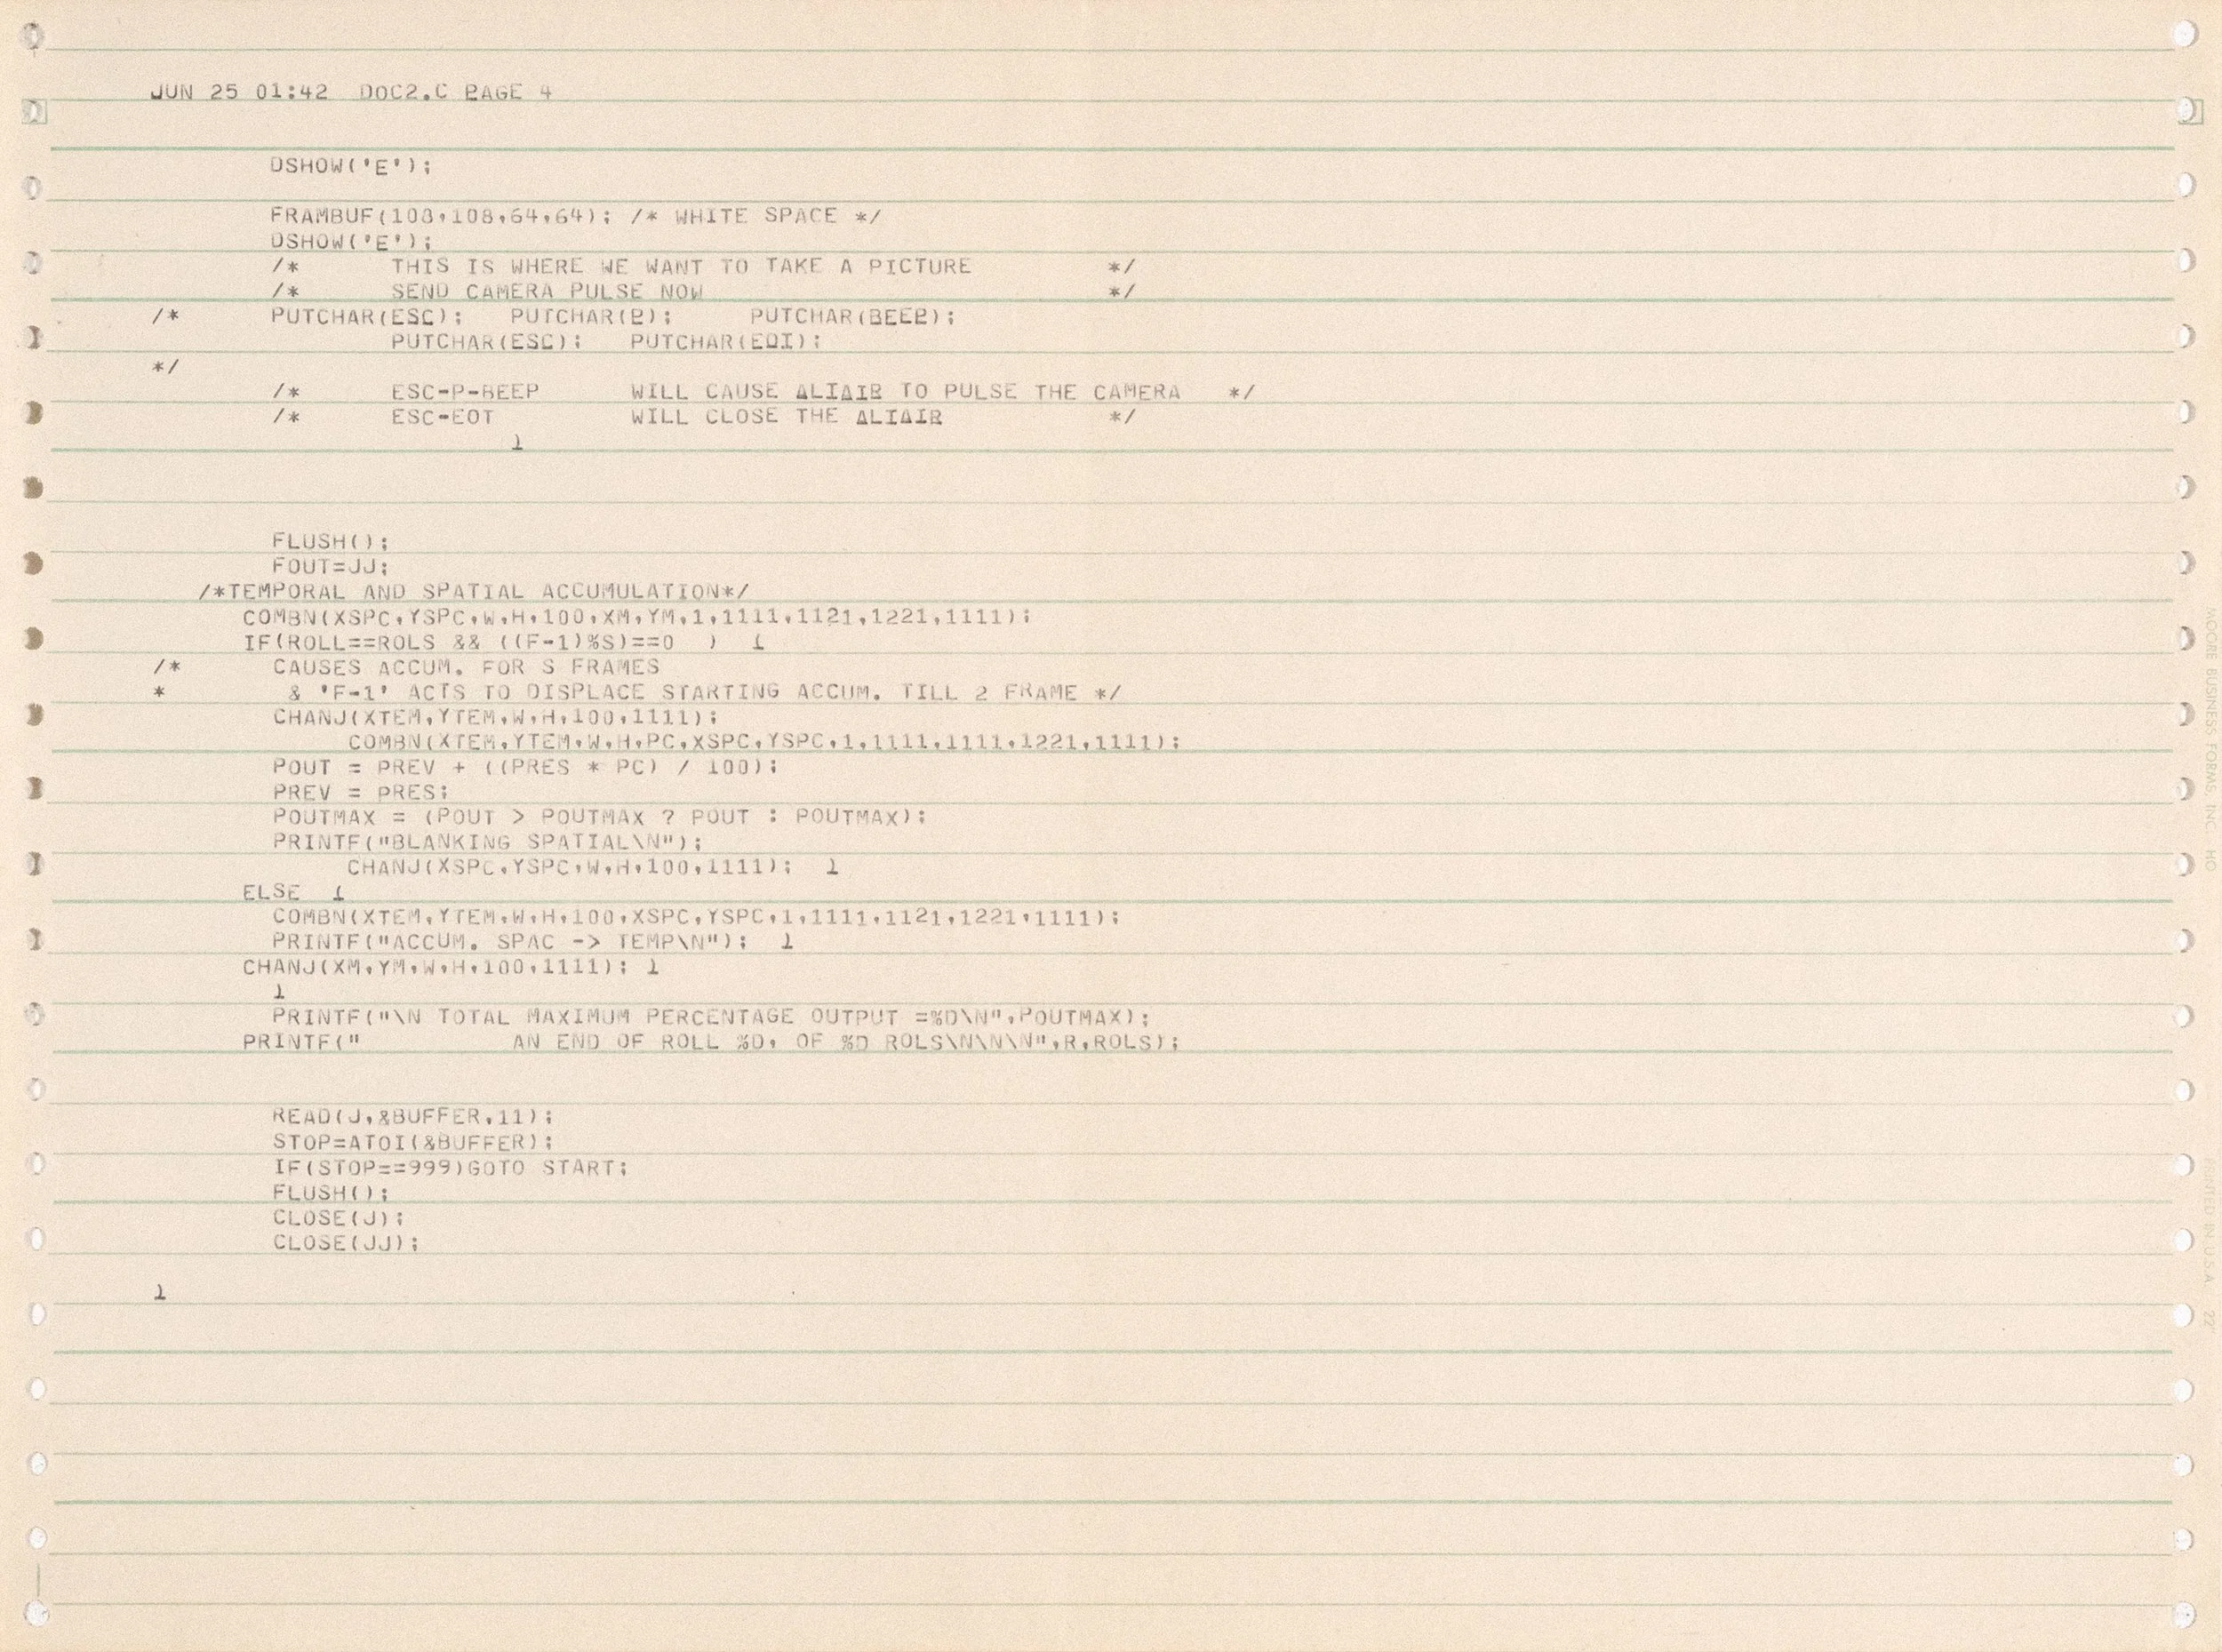 JUN 25 01:42  DOC2.C PAGE 4
DSHOW('E');
FRAMBUF(108,108,64,64); /* WHITE SPACE */
DSHOW('E');
/*      THIS IS WHERE WE WANT TO TAKE A PICTURE         */
/*      SEND CAMERA PULSE NOW                           */
/*      PUTCHAR(ESC);   PUTCHAR(P);     PUTCHAR(BEEP);
PUTCHAR(ESC);   PUTCHAR(EOI);
*/
/*      ESC-P-BEEP      WILL CAUSE ALIAIR TO PULSE THE CAMERA   */
/*      ESC-EOT         WILL CLOSE THE ALIAIR           */
}
FLUSH();
FOUT=JJ;
/*TEMPORAL AND SPATIAL ACCUMULATION*/
COMBN(XSPC,YSPC,W,H,100,XM,YM,1,1111,1121,1221,1111);
IF(ROLL==ROLS && ((F-1)%S)==0  )  {
/*      CAUSES ACCUM. FOR S FRAMES
*        & 'F-1' ACTS TO DISPLACE STARTING ACCUM. TILL 2 FRAME */
CHANJ(XTEM,YTEM,W,H,100,1111);
COMBN(XTEM,YTEM,W,H,PC,XSPC,YSPC,1,1111,1111,1221,1111);
POUT = PREV + ((PRES * PC) / 100);
PREV = PRES;
POUTMAX = (POUT > POUTMAX ? POUT : POUTMAX);
PRINTF("BLANKING SPATIAL\N");
CHANJ(XSPC,YSPC,W,H,100,1111);  }
ELSE  {
COMBN(XTEM,YTEM,W,H,100,XSPC,YSPC,1,1111,1121,1221,1111);
PRINTF("ACCUM. SPAC -> TEMP\N");  }
CHANJ(XM,YM,W,H,100,1111); }
}
PRINTF("\N TOTAL MAXIMUM PERCENTAGE OUTPUT =%D\N",POUTMAX);
PRINTF("          AN END OF ROLL %D, OF %D ROLS\N\N\N",R,ROLS);
READ(J,&BUFFER,11);
STOP=ATOI(&BUFFER);
IF(STOP==999)GOTO START;
FLUSH();
CLOSE(J);
CLOSE(JJ);
}
MOORE BUSINESS FORMS, INC. HO
PRINTED IN U.S.A. 22